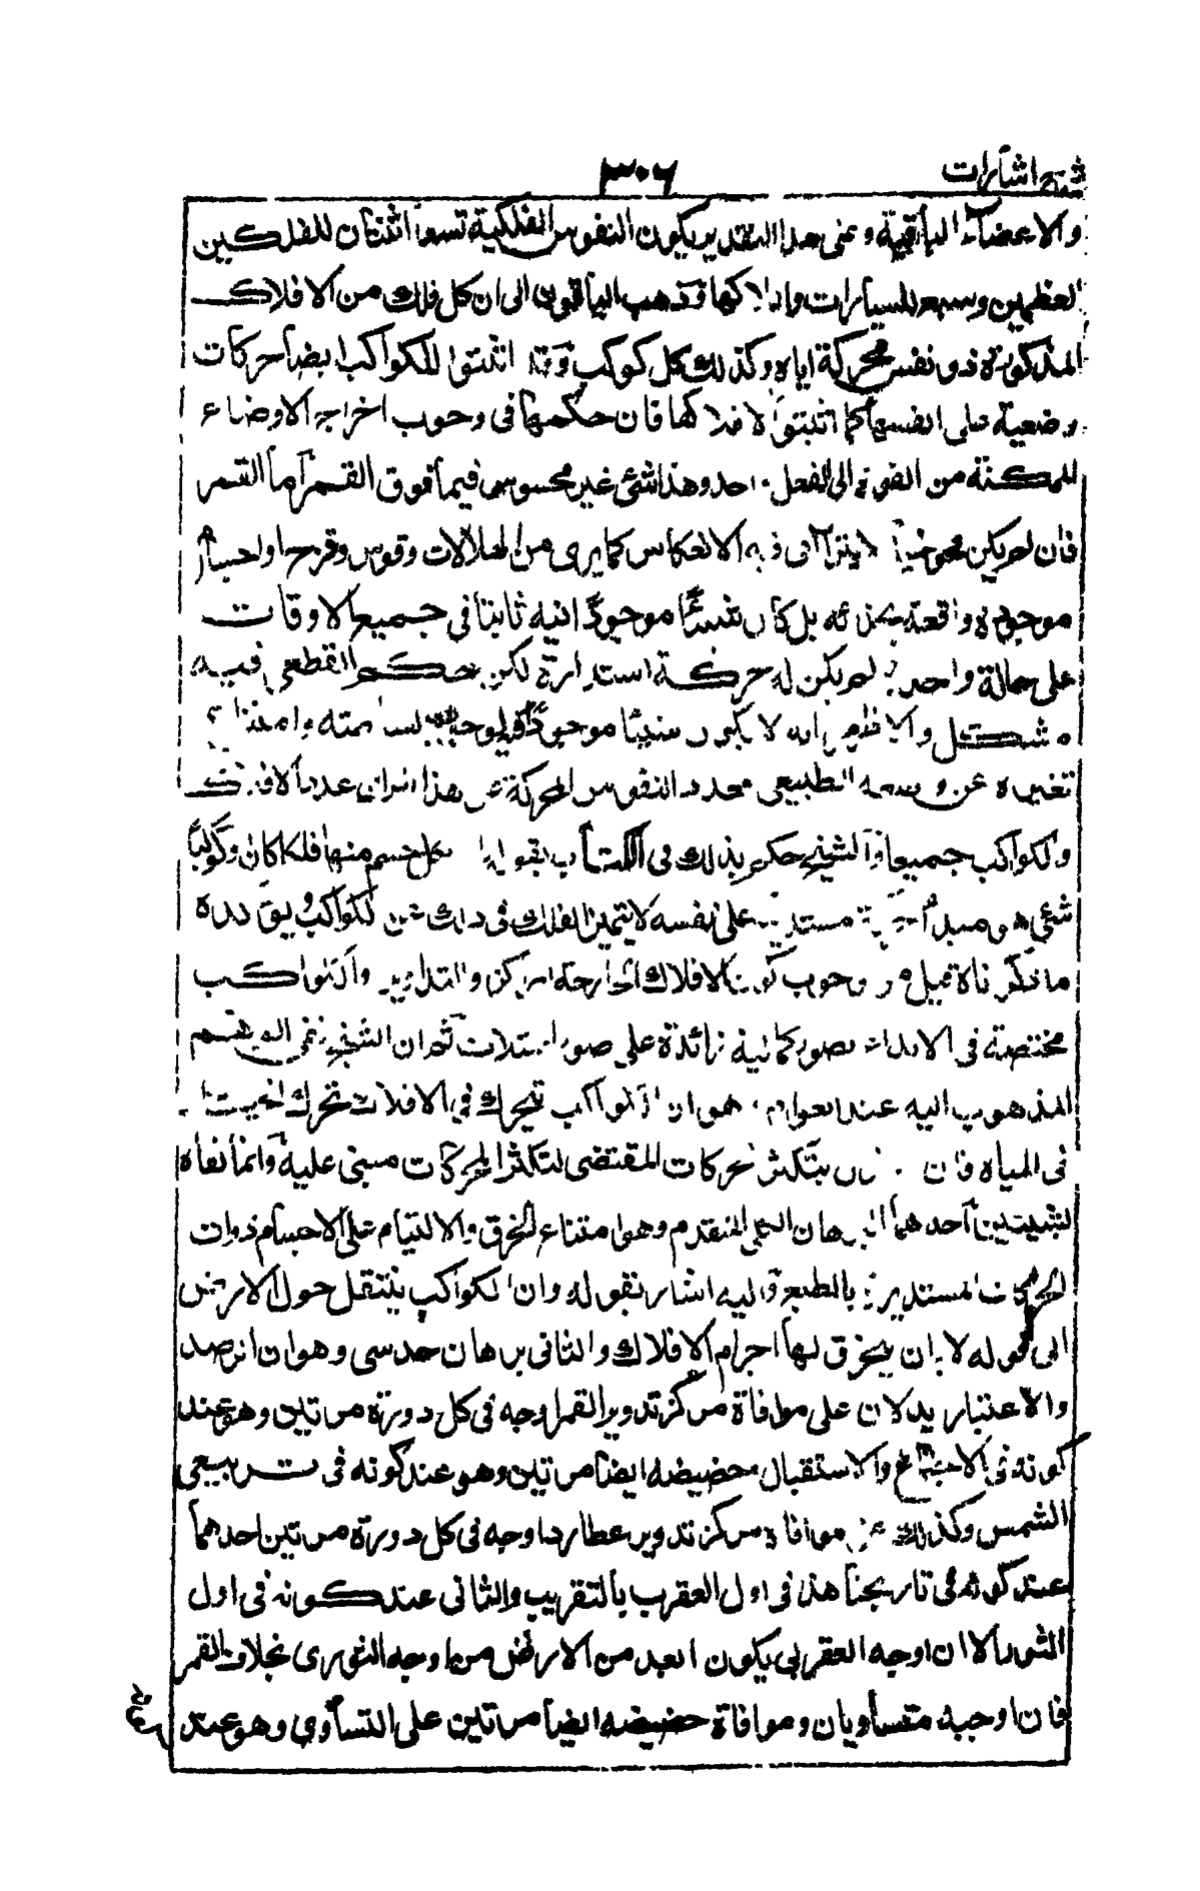 شرح اشارات
٣٠٦
والاعضاء الباقية وعلى هذا التقدير يكون النفوس الفلكية تسعا اثنتان للفلكين
العظيمين وسبعه للسيارات وافلاكها وذهب الباقون الى ان كل فلك من الافلاك
المذكورة ذو نفس محركة اياه وكذلك كل كوكب وقد اثبتوا للكواكب ايضا حركات
وضعية على انفسها كما اثبتوا لافلاكها فان حكمها فى وجوب اخراج الاوضاع
الممكنة من القوة الى الفعل واحد وهذا شئ غير محسوس فيما فوق القمر اما القمر
فان لم يكن محوه خيالا يتراآى فيه بالانعكاس كما يرى من الهالات وقوس وقزح او اجسام
موجودة واقعة بحذائه بل كان شيئا موجودا فيه ثابتا فى جميع الاوقات
على حالة واحدة لم يكن له حركة استدارة لكن الحكم القطعى فيه
مشكل والاظهر انه لا يكون شيئا موجودا فيه لوجوب بساطته وامتناع
تغيره عن وضعه الطبيعى فعدد النفوس المحركة على هذا الراى عدد الافلاك
والكواكب جميعا والشيخ حكم بذلك فى الكتاب بقوله لكل جسم منها فلكا كان او كوكبا
شئ هو مبدأ حركة مستديرة على نفسه لا يتميز الفلك فى ذلك عن الكواكب ويؤيده
ما ذكرناه قبيل من وجوب كون الافلاك الخارجة المركز والتداوير والكواكب
مختصة فى الابداء بصور كمالية زائدة على صور ثم ان الشيخ نفى الوهم
المذهوب اليه عند العوام وهو ان الكواكب تتحرك فى الافلاك تحرك الحيتان
فى المياه فان القول بتكثر المحركات المقتضى لتكثر المحركات مبنى عليه وانما نفاه
بشيئين احدهما البرهان الكلى المتقدم وهو امتناع الخرق والالتيام على الاجسام ذوات
الحركات المستديرة بالطبع واليه اشار بقوله وان الكواكب ينتقل حول الارض
الى قوله لا بان ينخرق لها اجرام الافلاك والثانى برهان حدسى وهو ان الرصد
والاعتبار يدلان على موافاة مركز تدوير القمر اوجه فى كل دورة مرتين وهو عند
كونه فى الاجتماع والاستقبال وحضيضه ايضا مرتين وهو عند كونه فى تربيعى
الشمس وكذلك على موافاة مركز تدوير عطارد اوجه فى كل دورة مرتين احدهما
عند كونه فى تاريخنا هذا فى اول العقرب بالتقريب والثانى عند كونه فى اول
الثور الا ان اوجه العقربى يكون ابعد من الارض من اوجه الثورى بخلاف القمر
فان اوجيه متساويان وموافاة حضيضه ايضا مرتين على التساوى وهو عند